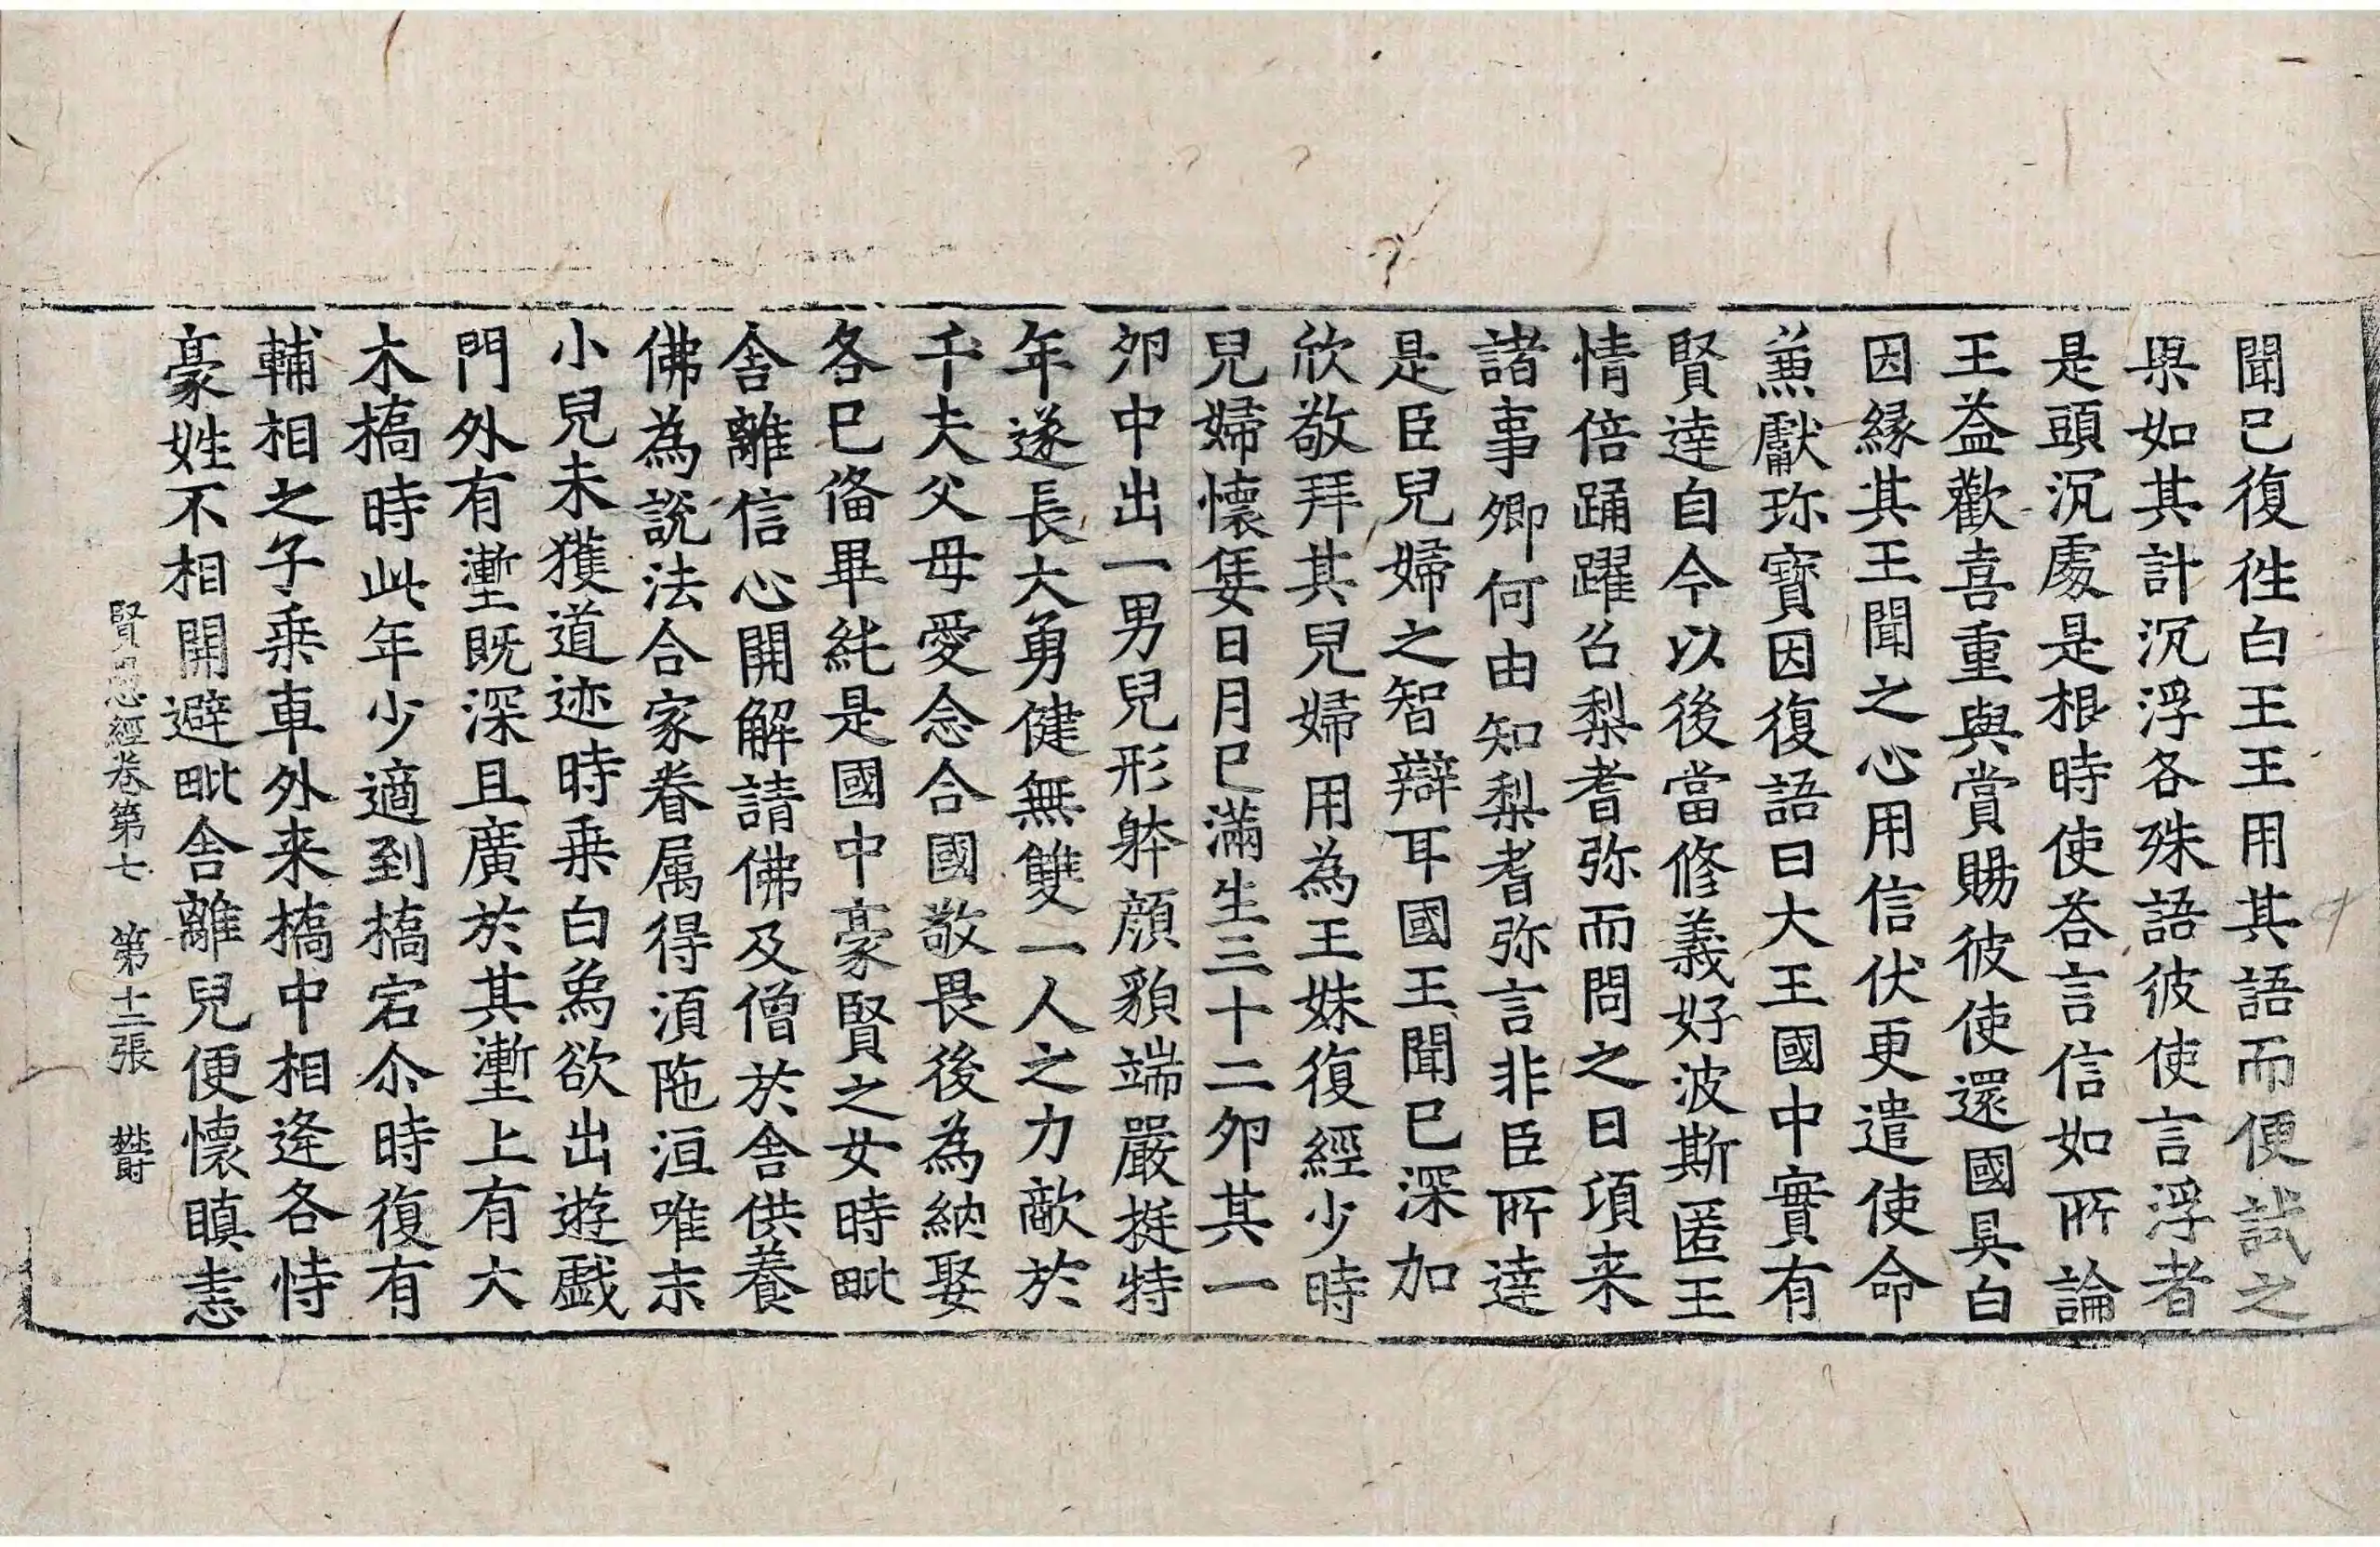 聞已復徃白王王用其語而便試之
果如其計沉浮各殊語彼使言浮者
是頭沉處是根時使荅言信如所論
王益歡喜重與賞賜彼使還國具白
因緣其王聞之心用信伏更遣使命
兼獻珎寶因復語曰大王國中實有
賢達自今以後當修義好波斯匿王
情倍踊躍召梨耆弥而問之曰項来
諸事卿何由知梨耆弥言非臣所達
是臣兒婦之智辯耳國王聞已深加
欣敬拜其兒婦用為王妹復經少時
兒婦懷𡜟日月已滿生三十二卵其一
卵中出一男兒形躰顔貌端嚴挺特
年遂長大勇健無雙一人之力敵於
千夫父母愛念合國敬畏後為納娶
各已俻畢純是國中豪賢之女時毗
舎離信心開解請佛及僧於舎供養
佛為說法合家眷属得湏陁洹唯末
小兒未獲道迹時乗白烏欲出遊戯
門外有塹既深且廣於其塹上有大
木橋時此年少適到橋宕尒時復有
輔相之子乗車外来橋中相逢各恃
豪姓不相開避毗舎離兒便懷瞋恚
賢愚經卷第七 第十二張 欝